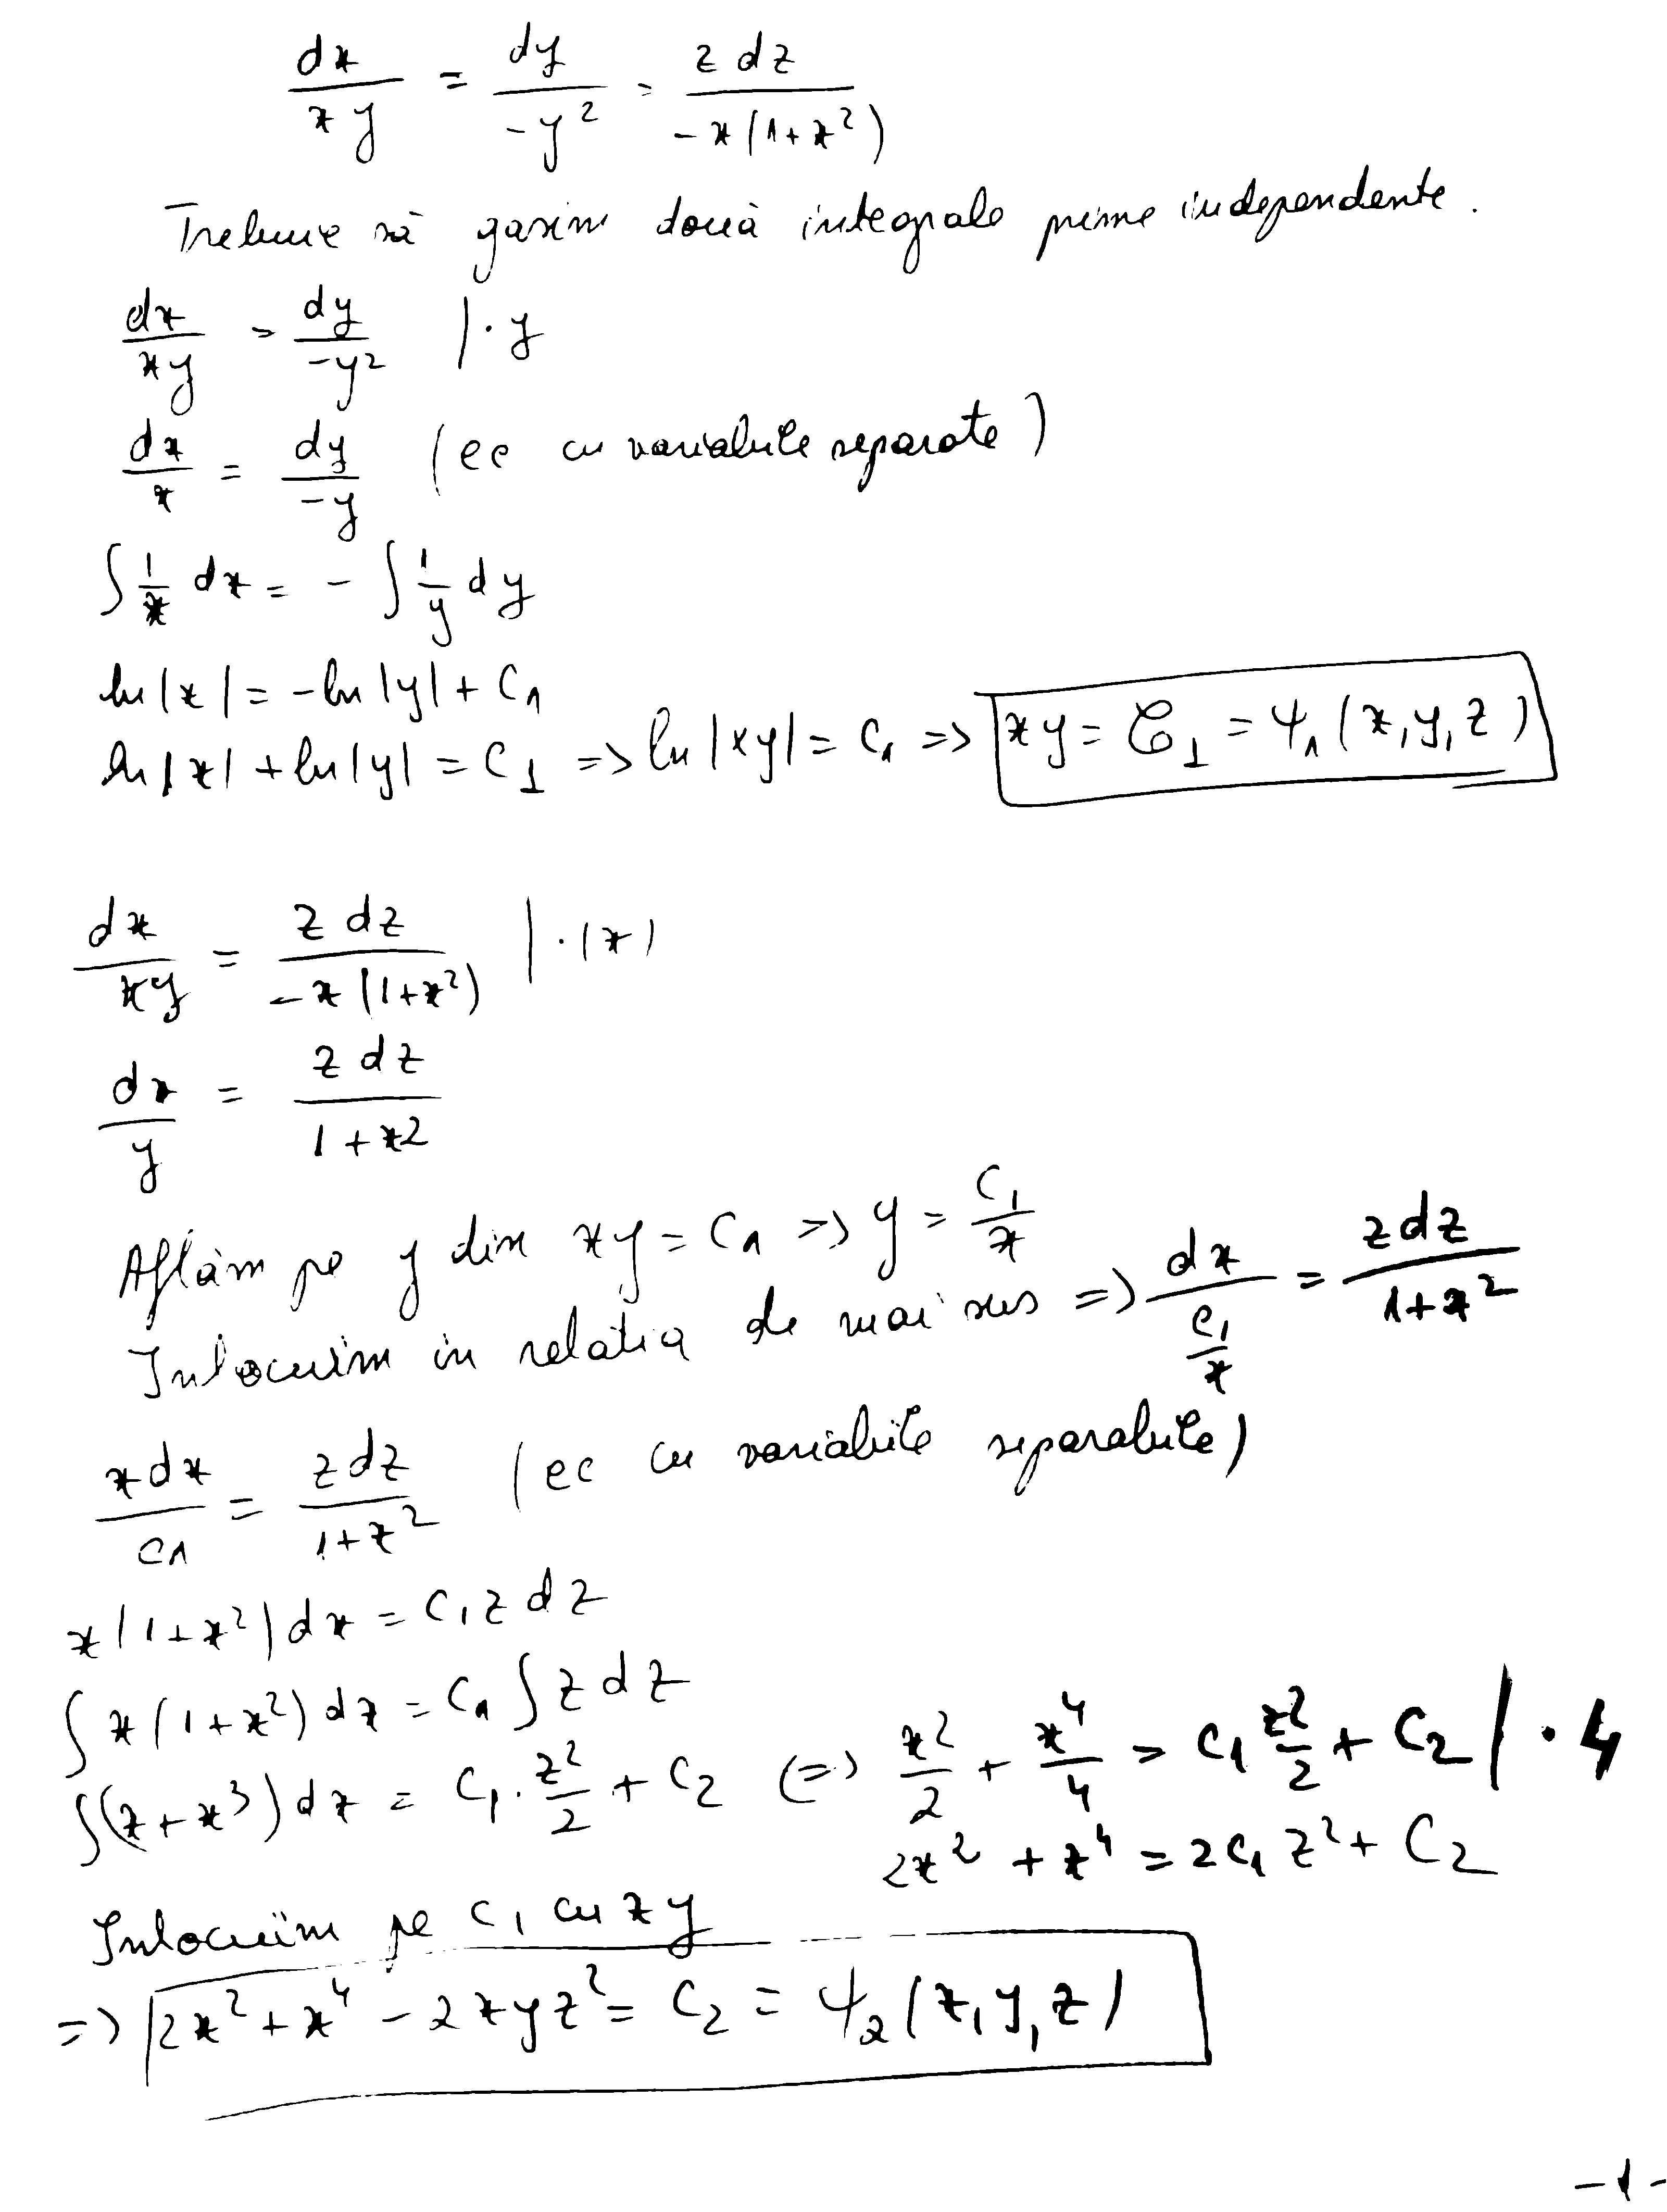 dx/xy = dy/-y² = z dz/-x(1+x²)
Trebuie să găsim două integrale prime independente.
dx/xy = dy/-y² | · y
dx/x = dy/-y (ec cu variabile separate)
∫ 1/x dx = - ∫ 1/y dy
ln|x| = -ln|y| + C₁
ln|x| + ln|y| = C₁ => ln|xy| = C₁ => xy = C₁ = ψ₁(x,y,z)
dx/xy = z dz/-x(1+x²) | · (x)
dx/y = z dz/1+x2
Aflăm pe y din xy = C₁ => y = C₁/x
Inlocuim in relatia de mai sus => dx/(C₁/x) = z dz/1+x²
x dx/C₁ = z dz/1+x² (ec cu variabile separabile)
x(1+x²) dx = C₁ z dz
∫ x(1+x²) dx = C₁ ∫ z dz
∫(x+x³) dx = C₁ · z²/2 + C₂ (=> x²/2 + x⁴/4 = C₁ z²/2 + C₂ | · 4
2x² + x⁴ = 2C₁ z² + C₂
Inlocuim pe C₁ cu xy
=> 2x² + x⁴ - 2xyz² = C₂ = ψ₂(x,y,z)
-1-